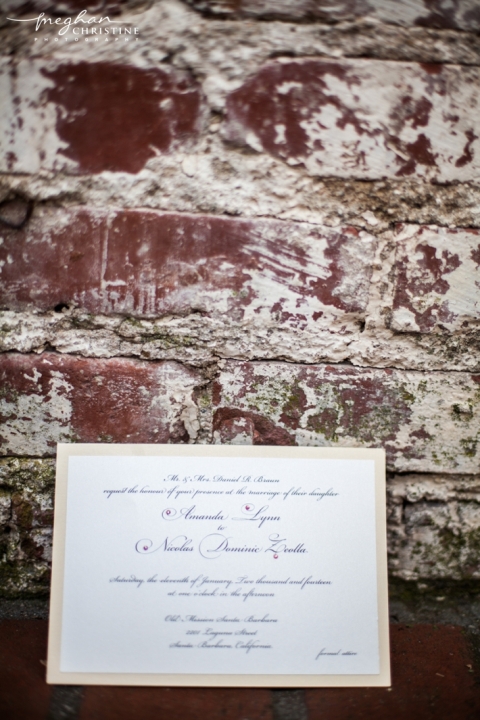 meghan
CHRISTINE
PHOTOGRAPHY
Mr. & Mrs. Daniel R. Braun
request the honour of your presence at the marriage of their daughter
Amanda Lynn
to
Nicolas Dominic Zeolla
Saturday, the eleventh of January, Two thousand and fourteen
at one o'clock in the afternoon
Old Mission Santa Barbara
2201 Laguna Street
Santa Barbara, California
formal attire